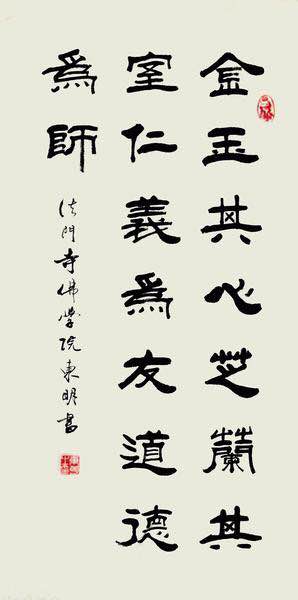 金玉其心芝蘭其
室仁義為友道德
為師
法門寺佛學院東明書